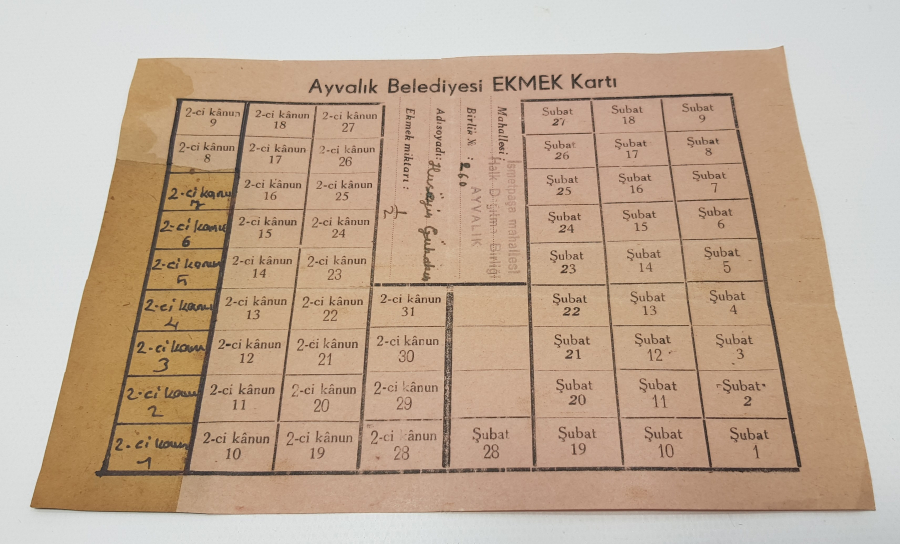 Ayvalık Belediyesi EKMEK Kartı
2-ci kânun 9
2-ci kânun 18
2-ci kânun 27
Şubat 27
Şubat 18
Şubat 9
2-ci kânun 8
2-ci kânun 17
2-ci kânun 26
Şubat 26
Şubat 17
Şubat 8
2-ci kanu 7
2-ci kânun 16
2-ci kânun 25
Şubat 25
Şubat 16
Şubat 7
2-ci kanu 6
2-ci kânun 15
2-ci kânun 24
Şubat 24
Şubat 15
Şubat 6
2-ci kanun 5
2-ci kânun 14
2-ci kânun 23
Şubat 23
Şubat 14
Şubat 5
Mahallesi :
İsmetpaşa mahallesi
Halk Dağıtma Birliği
AYVALIK
Birlik No : 260
Adı soyadı: Hüseyin
Ekmek miktarı : 1/2
2-ci kanu 4
2-ci kânun 13
2-ci kânun 22
2-ci kânun 31
Şubat 22
Şubat 13
Şubat 4
2-ci kanu 3
2-ci kânun 12
2-ci kânun 21
2-ci kânun 30
Şubat 21
Şubat 12
Şubat 3
2-ci kanu 2
2-ci kânun 11
2-ci kânun 20
2-ci kânun 29
Şubat 20
Şubat 11
Şubat 2
2-ci kanun 1
2-ci kânun 10
2-ci kânun 19
2-ci kânun 28
Şubat 28
Şubat 19
Şubat 10
Şubat 1